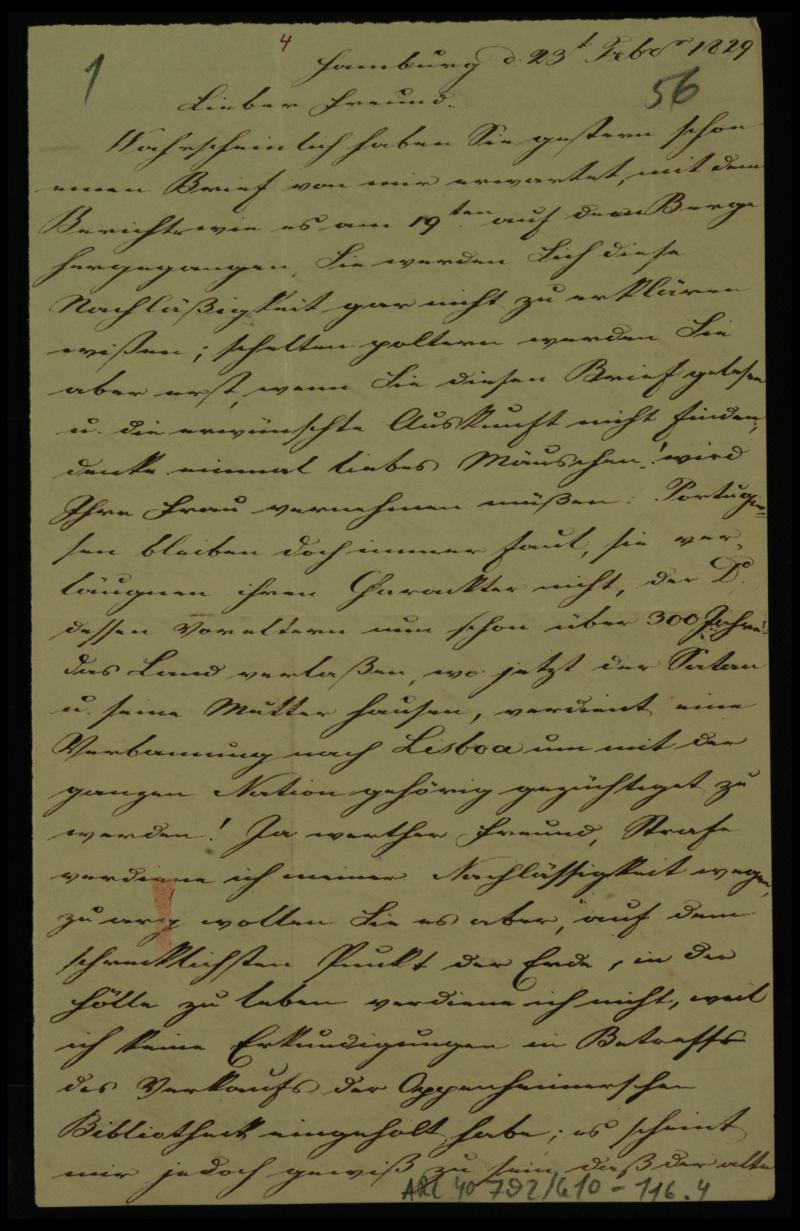 4
1
Hamburg d. 23t Febr 1829
56
Lieber Freund.
Wahrscheinlich haben Sie gestern schon
einen Brief von mir erwartet, mit dem
Bericht wie es am 19ten auf dem Berge
hergegangen, Sie werden sich diese
Nachläßigkeit gar nicht zu erklären
wißen; schelten poltern werden Sie
aber erst, wenn Sie diesen Brief gelesen
u. die erwünschte Auskunft nicht finden,
denke einmal liebes Mäuschen! wird
Ihre Frau vernehmen müßen: Portugie=
sen bleiben doch immer faul, sie ver=
läugnen ihren Charackter nicht, der D.
dessen Voreltern nun schon über 300 Jahre
das Land verlaßen, wo jetzt der Satan
u. seine Mutter hausen, verdient eine
Verbannung nach Lisboa um mit der
ganzen Nation gehörig gezüchtiget zu
werden! Ja werther Freund, Strafe
verdiene ich meiner Nachlässigkeit wegen,
zu arg wollen Sie es aber, auf dem
schrecklichsten Punkt der Erde, in der
Hölle zu leben verdiene ich nicht, weil
ich keine Erkundigungen in Betreffs
des Verkaufs der Oppenheimerschen
Bibliotheck eingeholt habe; es scheint
mir jedoch gewiß zu sein, daß der alte
ARC 40 792/G10-116.4